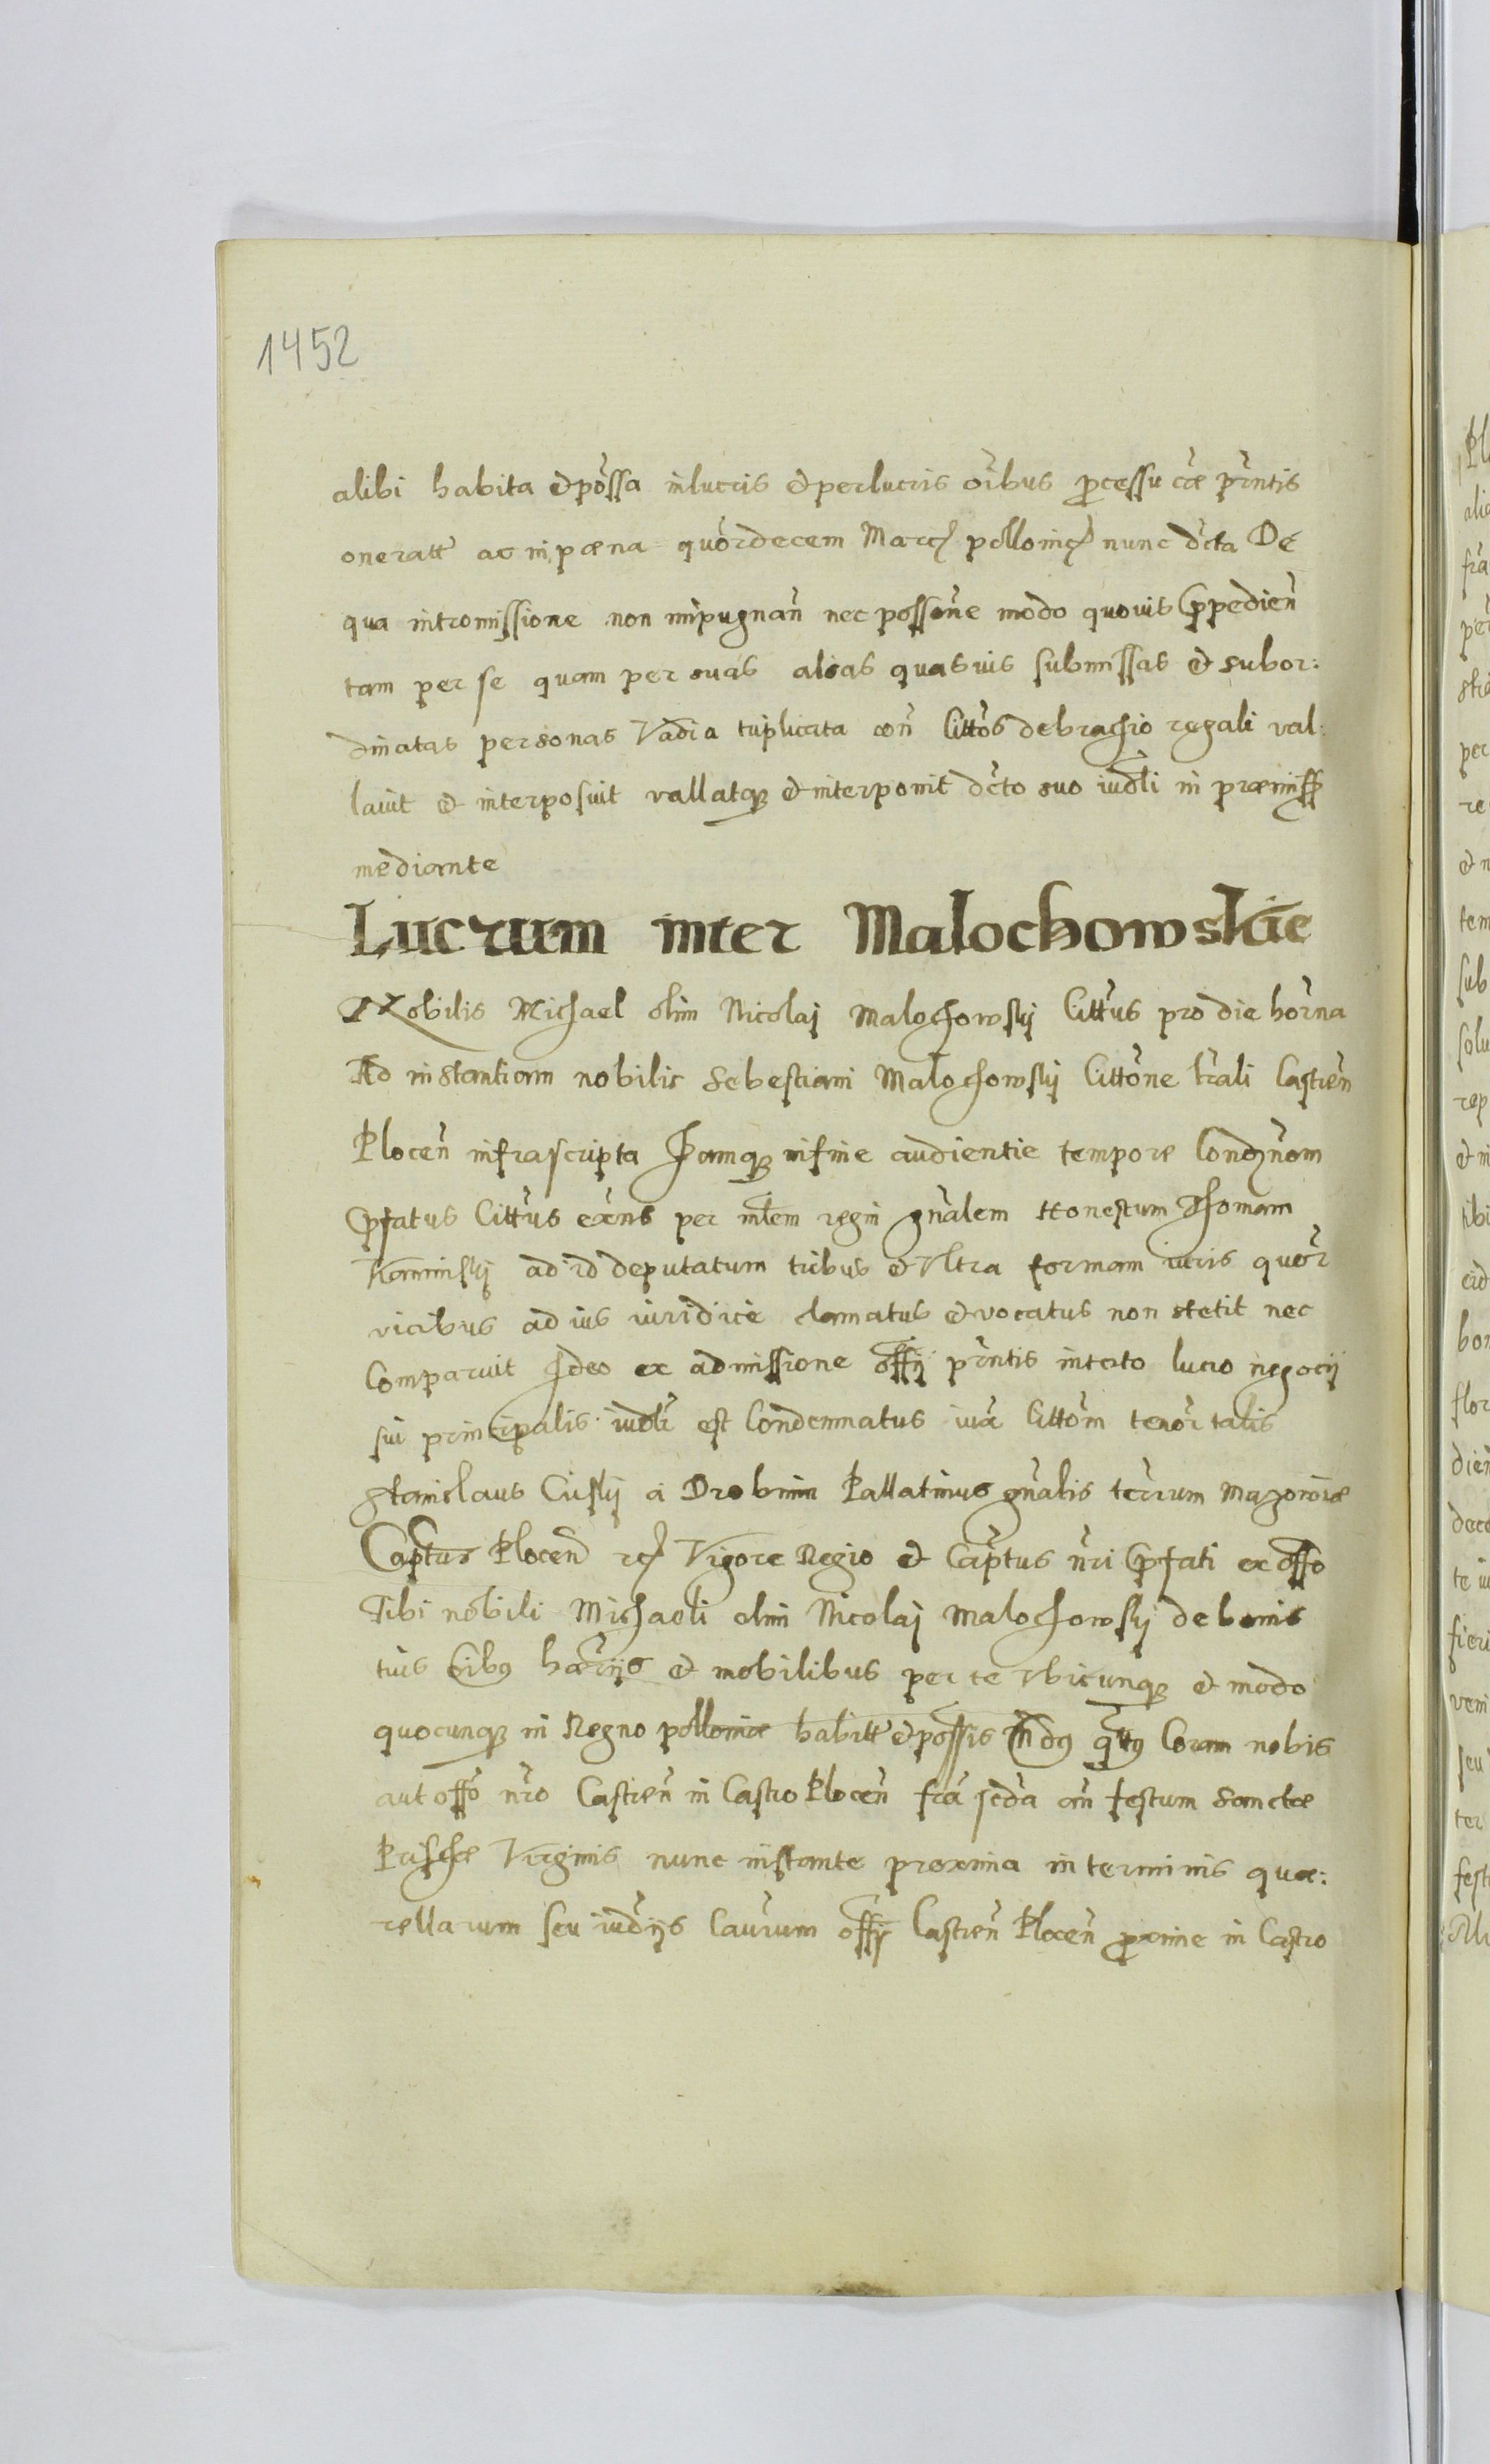 1452
alibi habita et põssa in lucris et perlucris oĩbus p̃cessu cãe p̃rntis
oneratt ac in pæna quõrdecem Marc polloinc nunc dc̃ta De
qua intromissione non impugnañ nec possoñe modo quovis Ppedieñ
tam per se quam per suas alias quasvis submissas et subor:
dinatas personas Vadia triplicata coñ Cittõs de brachio regali val:
lavit et interposuit vallatq et interponit dc̃to suo iudli in præmiss
mediante
Lucrum inter Malochowskie
Nobilis Michael olim Nicolaj Malochowskij Cittũs pro die horña
Ad instantiam nobilis Sebestiani Malochowskij Cittõne lr̃ali Castreñ
Ploceñ infrascripta Jamq in fine audientie tempore Condg̃nom
Pfatus Cittũs exñs per mlem regiu gñalem Honestum Thomam
Kaminskij ad id deputatum tribus et Vltra formam iuris quõr
vicibus ad ius iuridice clamatus et vocatus non stetit nec
Comparuit Ideo ex admissione offij p̃rntis in toto lucro negocij
sui principalis iudlr est Condemnatus iux̃a Cittõm tenõr talis
Stanislaus Criskij a Drobnin Pallatinus gñalis terrum Mazoviæ
Captus Ploceñ rc Vigore Regio et Captus nr̃i Pfati ex offo
Tibi nobili Michaeli olim Nicolaj Malochowskij de bonis
tuis oibus hærijs et mobilibus per te Vbicunq et modo
quocunq in Regno polloniæ habitt et possis Mdg q̃ttg Coram nobis
aut offo nr̃o Castreñ in Castro Ploceñ fr̃a scda añ festum Sanctæ
Prischæ Virginis nunc instante proxima in terminis quæ:
rellarum seu iudijs Caurum offij Castreñ Ploceñ p̃xime in Castro